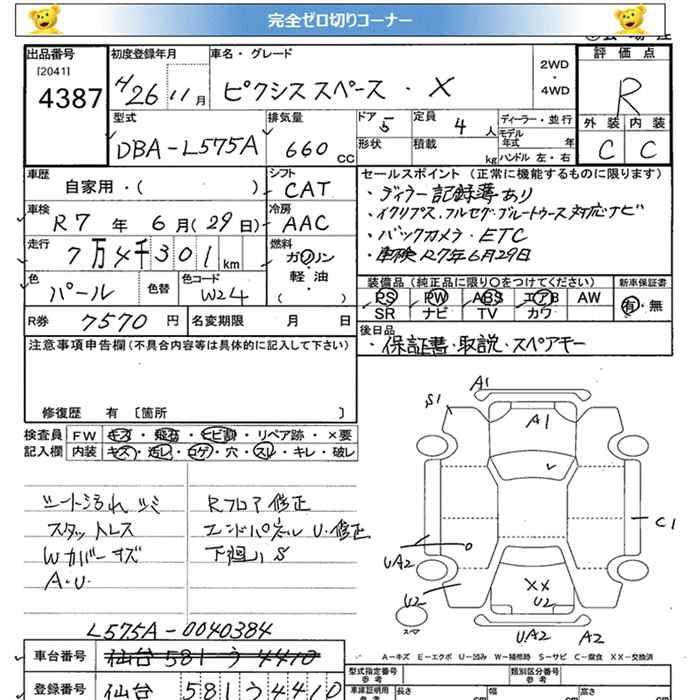 完全ゼロ切りコーナー
出品番号 初度登録年月 車名・グレード 2WD・4WD 評価点
[2041]
4387 H26 11月 ピクシススペース・X R
型式 排気量 ドア 定員 ディーラー・並行 外装 内装
DBA-L575A 660CC 5 4人 モデル年式 年 C C
形状 積載 kg ハンドル 左・右
車歴 シフト セールスポイント(正常に機能するものに限ります)
自家用・( ) CAT ・ディラー記録簿あり
車検 冷房 ・イクリプス、フルセグ、ブルートゥース対応ナビ
R7年6月(29日) AAC ・バックカメラ・ETC
走行 燃料 ・車検R7年6月29日
7万4千301km ガソリン
色 色替 色コード 軽・油 装備品(純正品に限り〇をつけてください) 新車保証書
パール W24 ( ) PS PW ABS エアB AW 有・無
SR ナビ TV カワ
R券 7570円 名変期限 月 日 後日品
注意事項申告欄(不具合内容等は具体的に記入して下さい) ・保証書・取説・スペアキー
修復歴 有 〔箇所 〕
検査員 FW キズ・飛石・ヒビ割・リペア跡・×要
記入欄 内装 キズ・汚レ・コゲ・穴・スレ・キレ・破レ
A1
S1 A1
シート汚れシミ Rフロア修正
スタットレス エンドパネルU・修正 C1
Wカバーキズ 下廻りS UA2
A・U. XX
U2 U2
スマ UA2 A2
L575A-0040384
A=キズ E=エクボ U=凹み W=補修時 S=サビ C=腐食 XX=交換済
車台番号 仙台581う4410 型式指定番号 参考 類別区分番号 参考
登録番号 仙台 581う4410 車庫証明用 参考 長さ cm 幅 cm 高さ cm